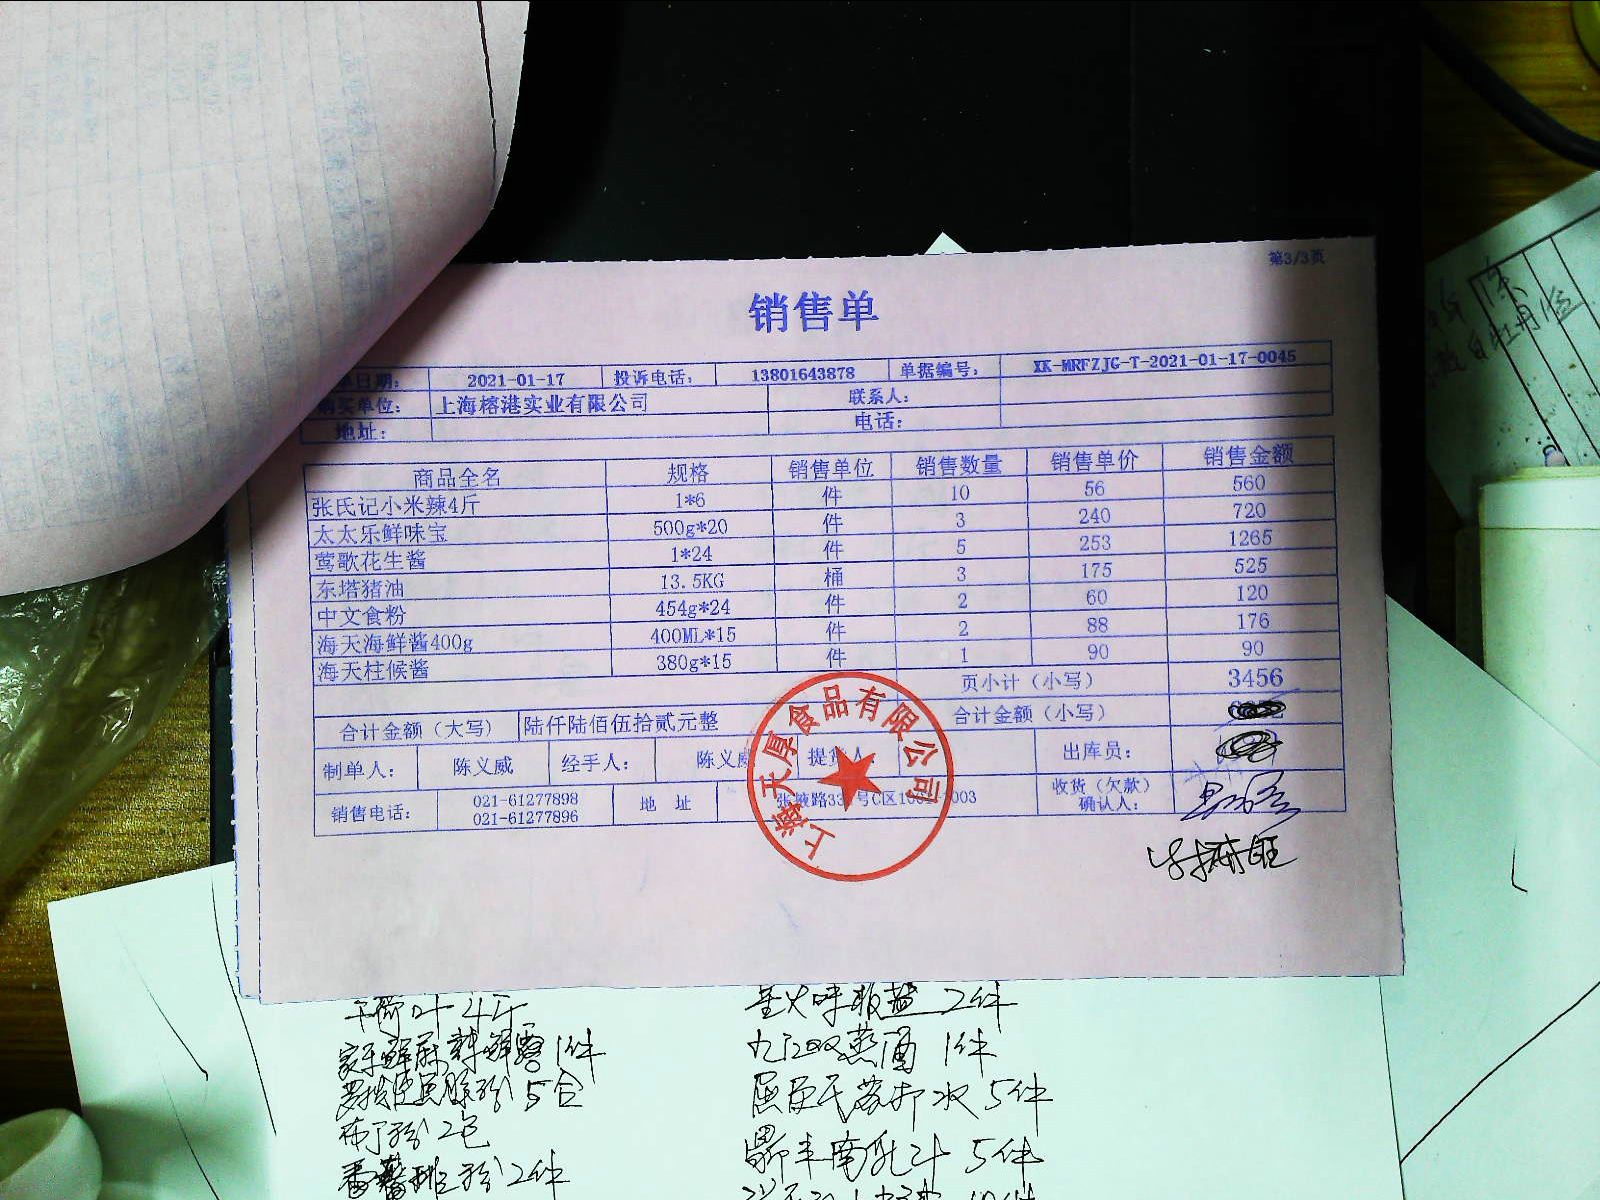 第3/3页
销售单
单日期： 2021-01-17 投诉电话： 13801643878 单据编号： XK-MRFZJG-T-2021-01-17-0045
购买单位： 上海榕港实业有限公司 联系人：
地址： 电话：
商品全名 规格 销售单位 销售数量 销售单价 销售金额
张氏记小米辣4斤 1*6 件 10 56 560
太太乐鲜味宝 500g*20 件 3 240 720
莺歌花生酱 1*24 件 5 253 1265
东塔猪油 13.5KG 桶 3 175 525
中文食粉 454g*24 件 2 60 120
海天海鲜酱400g 400ML*15 件 2 88 176
海天柱候酱 380g*15 件 1 90 90
页小计（小写） 3456
合计金额（大写） 陆仟陆佰伍拾贰元整 合计金额（小写）
制单人： 陈义威 经手人： 陈义威 提货人： 出库员：
销售电话： 021-61277898 021-61277896 地 址 张掖路33 号C区 003 收货（欠款）确认人：
上海天厚食品有限公司
干荷叶 4斤
2件
1件
5合
布丁粉 2包
2件
5件
南乳汁 5件